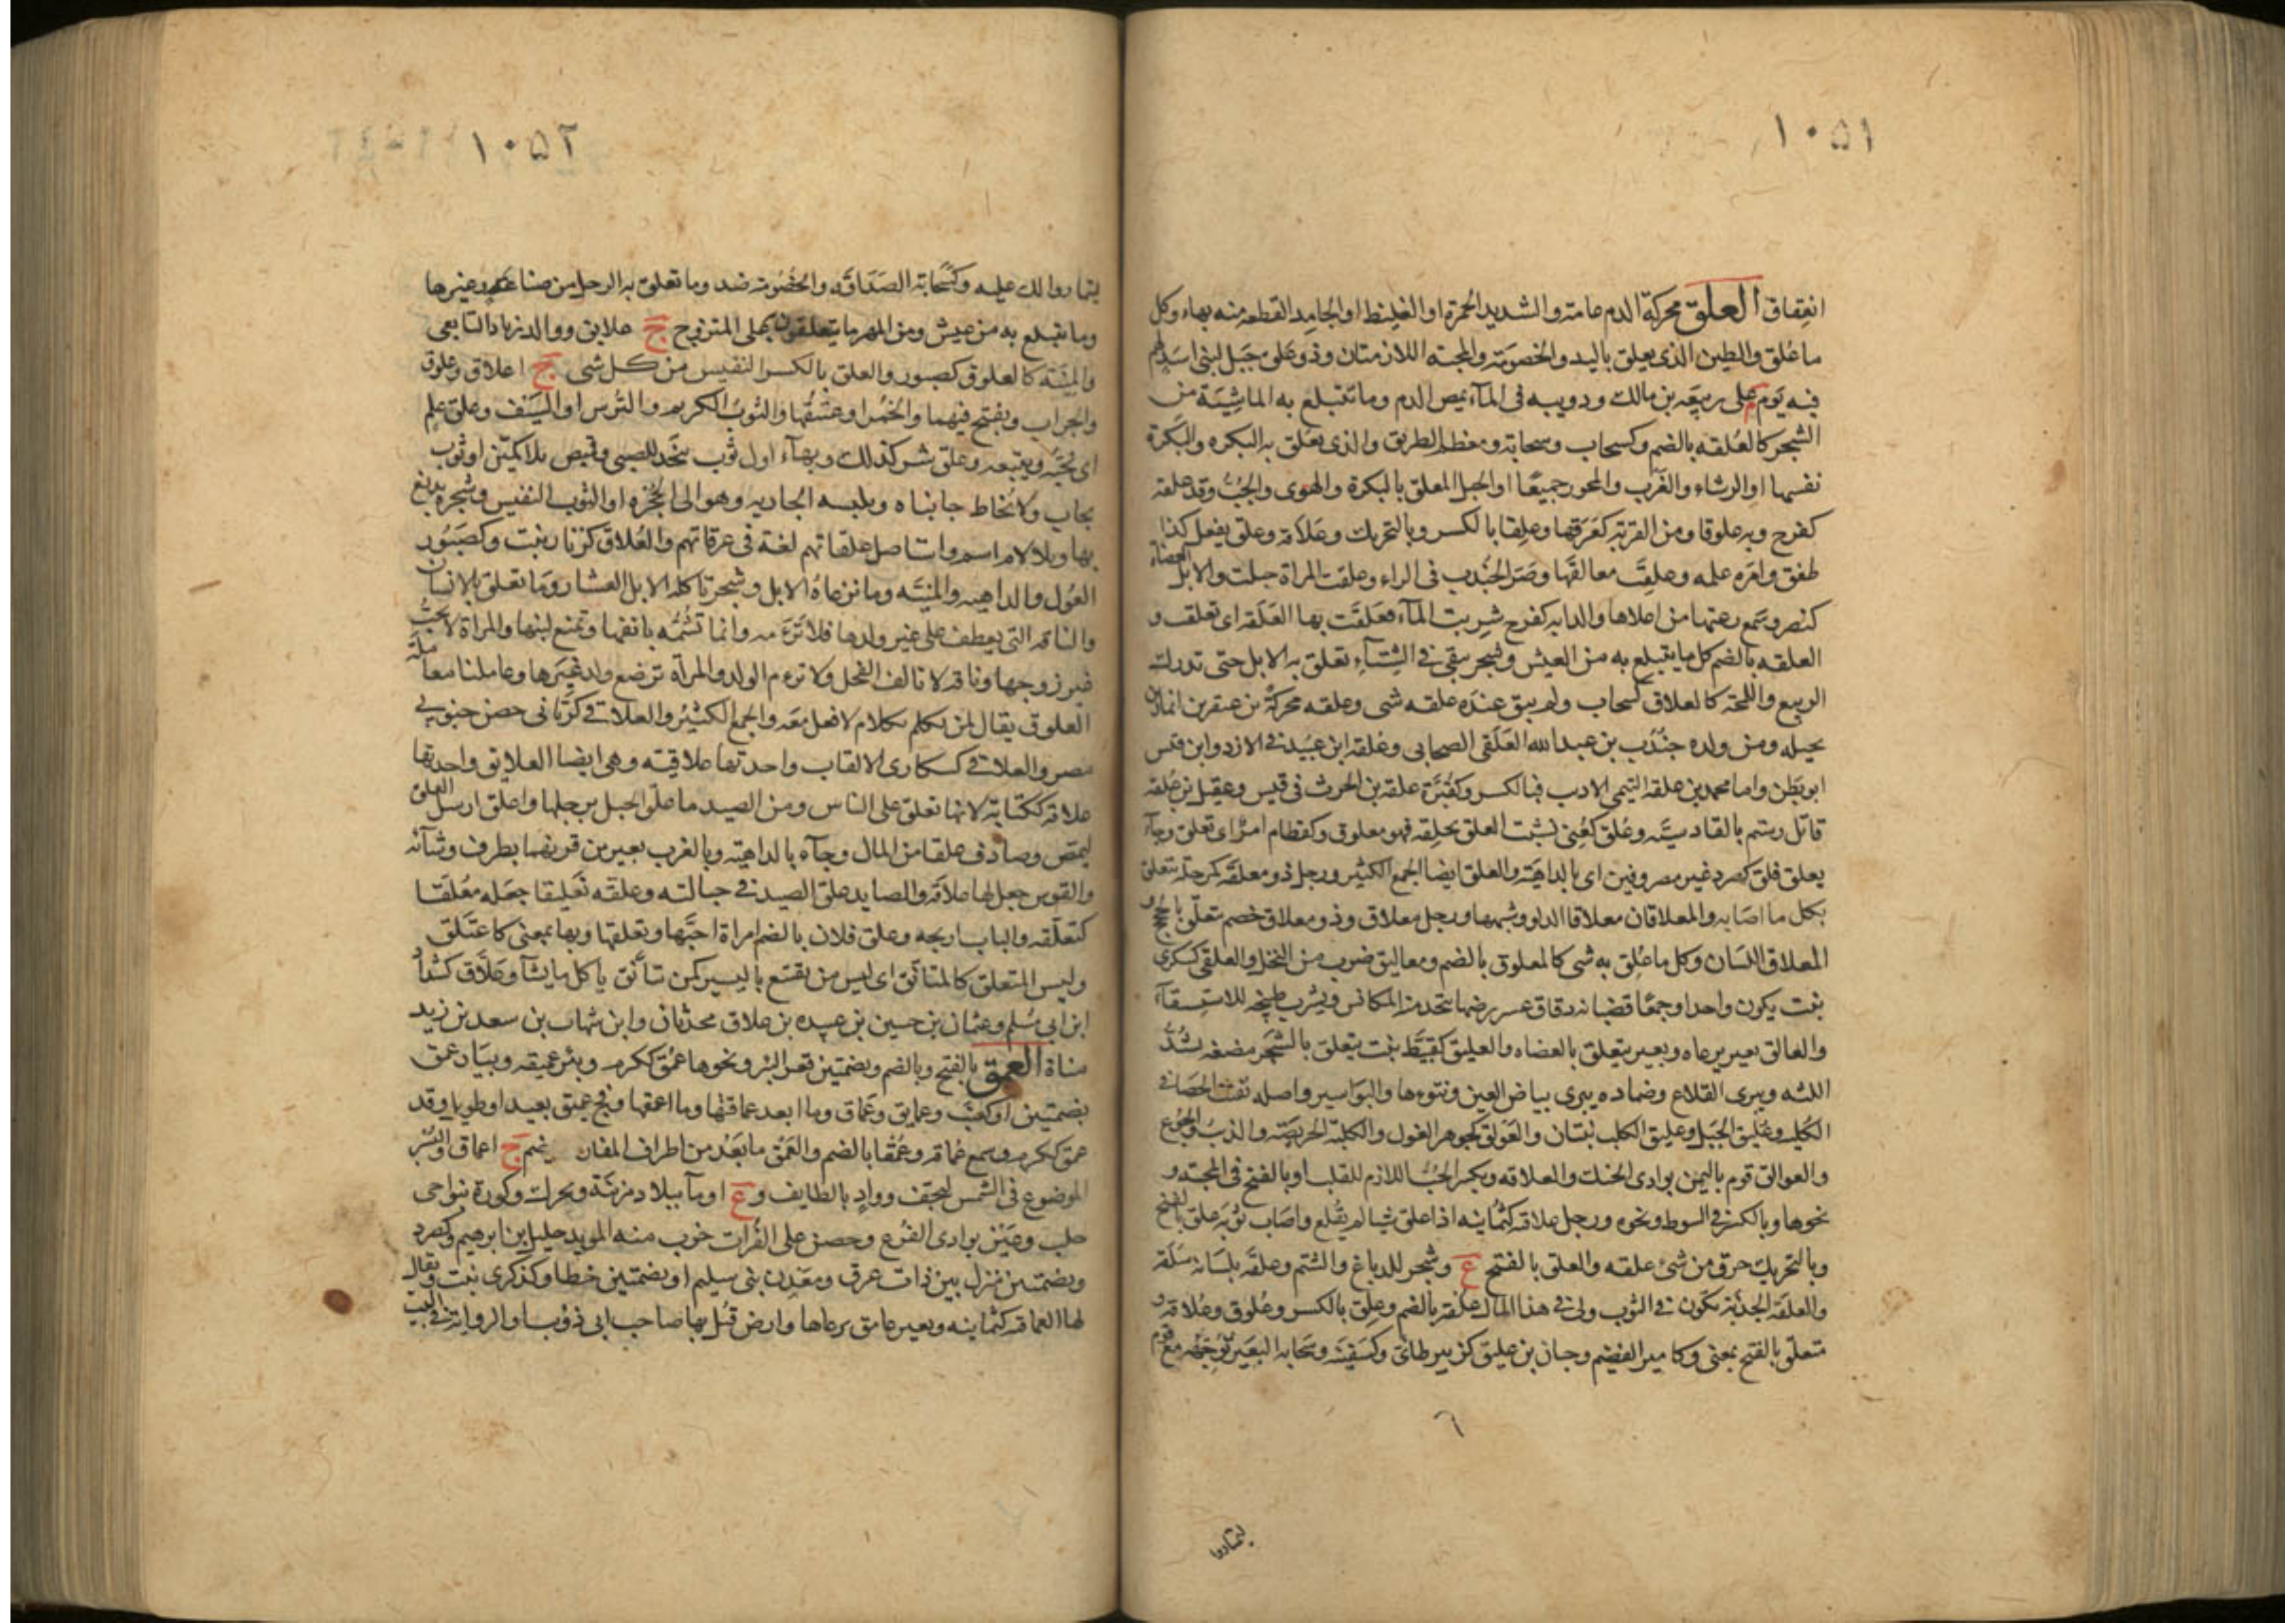 ١٠٥١
انعفاق العلق محركة الدم عامة والشديد الحمرة او الغليظ او الجامد القطعة منه بهاء وكل
ما علق والطين الذي يعلق باليد والخصومة والمحبة اللازمتان وذو علق جبل لبني اسد لهم
فيه يوم م على ربيعة بن مالك ودويبة في الماء يمص الدم وما تتبلغ به الماشية من
الشجر كالعلقة بالضم وكسحاب وسحابة ومعظم الطريق والذي تعلق به البكرة والبكرة
نفسها او الرشاء والغرب والمحور جميعا او الحبل المعلق بالبكرة والهوى والحب وقد علقه
كفرح وبه علوقا ومن القربة كعرقها وعلقا بالكسر وبالتحريك وعلاقة وعلق يفعل كذا
طفق وامره علمه وعلقت معالقها وصر الجندب في الراء وعلقت المراة حبلت والابل العضاه
كنصر وسمع رعتها من اعلاها والدابة كفرح شربت الماء فعلقت بها العلقة اي تعلقت و
العلقة بالضم كل ما يتبلغ به من العيش وشجر يبقى في الشتاء تعلق به الابل حتى تدرك
الربيع واللمجة كالعلاق كسحاب ولم يبق عنده علقة شى وعلقة محركة بن عبقر بن انمار في
بجيلة ومن ولده جندب بن عبد الله العلقي الصحابي وعلقة ابن عبيد في الازد وابن قيس
ابو بطن واما محمد بن علقة التيمي الاديب فبالكسر وكقبرة علقة بن الحرث في قيس وعقيل بن علقة
قاتل رستم بالقادسية وعلق كعني نشب العلق بحلقه فهو معلوق وكقطام امرا اي تعلق وجاء
بعلق فلق كصرد غير مصروفين اي بالداهية والعلق ايضا الجمع الكثير ورجل ذو معلقة كمرحلة يتعلق
بكل ما اصابه والمعلاقان معلاقا الدلو وشبهها ورجل معلاق وذو معلاق خصم يتعلق بالحجج و
المعلاق اللسان وكل ما علق به شى كالمعلوق بالضم ومعاليق ضرب من النخل والعلقى كسكرى
نبت يكون واحدا وجمعا قضبانه دقاق عسر رضها يتخذ منه المكانس ويشرب طبيخه للاستسقاء
والعالق بعير يرعاه وبعير يتعلق بالعضاه والعليق كقبيط نبت يتعلق بالشجر مضغه يشد
اللثة ويبرى القلاع وضماده يبرى بياض العين ونتوءها والبواسير واصله تفتت الحصا في
الكلية وعليق الجبل وعليق الكلب نبتان والعولق كجوهر الغول والكلبة الحريصة والذنب والجوع
والعوالق قوم باليمن بوادي الحنك والعلاقة ويكسر الحب اللازم للقلب او بالفتح في المحبة و
نحوها وبالكسر في السوط ونحوه ورجل علاقية كثمانية اذا علق شيا لم يقلع واصاب ثوبه علق بالفتح
وبالتحريك خرق من شئ علقه والعلق بالفتح ع وشجر للدباغ والشتم وعلقه بلسانه سلقه
والعلقة الجذبة تكون في الثوب ولى في هذا المال علقة بالضم وعلق بالكسر وعلوق وعلاقة و
متعلق بالفتح بمعنى وكامير القضيم وحبان بن عليق كزبير طائي وكسفينة وسحابة البعير توجهه مع قوم
٦
ليمتاروا
١٠٥٢
ليمتاروا لك عليه وكسحابة الصداقة والخصومة ضد وما تعلق به الرجل من صناعة وغيرها
وما يتبلغ به من عيش ومن المهر ما يتعلقون به على المتزوج ج علايق ووالد زياد التابعي
والمنية كالعلوق كصبور والعلق بالكسر النفيس من كل شى ج اعلاق وعلوق
والجراب ويفتح فيهما والخمر او عتيقها والثوب الكريم والترس او السيف وعلق علم
اي يحبه ويتبعه وعلق شر كذلك وبهاء اول ثوب يتخذ للصبي وقميص بلا كمين او ثوب
يجاب ولا يخاط جانباه وتلبسه الجارية وهو الى الحجزة او الثوب النفيس وشجرة يدبغ
بها وبلا لام اسم واستاصل علقاتهم لغة في عرقاتهم والعلاق كزنار نبت وكصبور
الغول والداهية والمنية وما ترعاه الابل وشجر تاكله الابل العشار وما تعلق بالانسان
والناقة التي يعطف على غير ولدها فلا ترءمه وانما تشمه بانفها وتمنع لبنها والمراة لا تحب
غير زوجها وناقة لا تالف الفحل ولا ترءم الولد والمراة ترضع ولد غيرها وعاملنا معاملة
العلوق يقال لمن تكلم بكلام لا فعل معه والجمع الكثير والعلاقي كرباني حصن جنوبي
مصر والعلاقى كسكارى الالقاب واحدتها علاقية وهى ايضا العلايق واحدتها
علاقة ككتابة لانها تعلق على الناس ومن الصيد ما علق الحبل برجلها واعلق ارسل العلق
ليمص وصادف علقا من المال وجاء بالداهية وبالغرب بعيرين قرنهما بطرف رشائه
والقوس جعل لها علاقة والصايد علق الصيد في حبالته وعلقه تعليقا جعله معلقا
كتعلقه والباب ارتجه وعلق فلان بالضم امراة احبها وتعلقها وبها بمعنى كاعتلق
وليس المتعلق كالمتانق اي ليس من يقتنع باليسير كمن تأنق ياكل ما يشاء وعلاق كشداد
ابن ابي مسلم وعثمان بن حسين بن عبيده بن علاق محدثان وابن شهاب بن سعد بن زيد
مناة العمق بالفتح وبالضم وبضمتين قعر البئر ونحوها عمق ككرم وبئر عميقة وبيار عمق
بضمتين او كعنب وعمايق وعماق وما ابعد عماقتها وما اعمقها وفج عميق بعيد او طويل وقد
عمق ككرم وسمع عماقة وعمقا بالضم والعمق ما بعد من اطراف المفازة ويضم ج اعماق والبسر
الموضوع في الشمس ليجف وواد بالطايف و ع او ماء ببلاد مزينة ويحرك وكورة بنواحى
حلب وعين بوادى الفرع وحصن على الفرات خرب منه المويد خليل بن ابرهيم وكصرد
وبضمتين منزل بين ذات عرق ومعدن بنى سليم او بضمتين خطا وكذكرى نبت ويقال
لها العماقية كثمانية وبعير عامق يرعاها وارض قتل بها صاحب ابي ذؤيب او الرواية في البيت